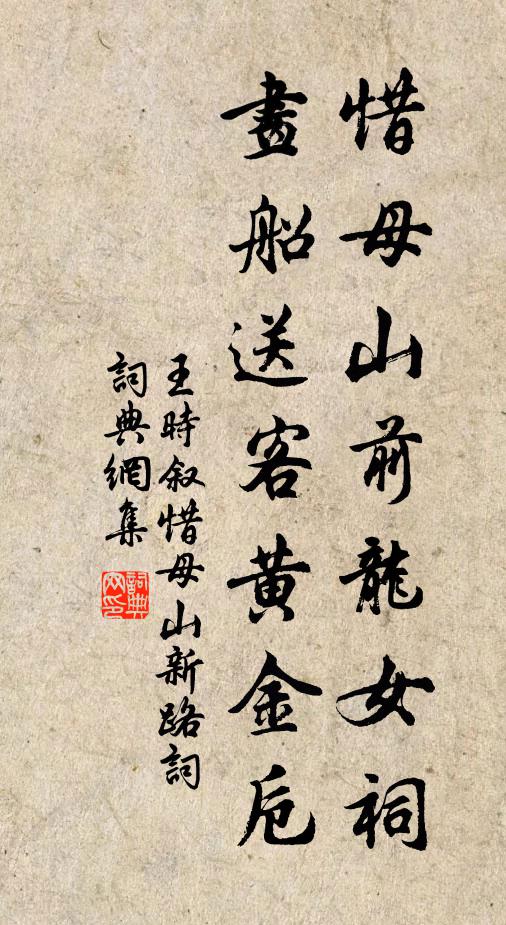 惜母山前龍女祠
畫船送客黄金卮
王時叙惜母山新路詞
詞典網集
詞典网印